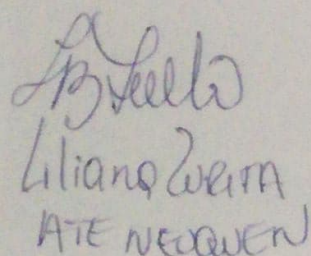 Liliana Zurita
ATE NEUQUEN